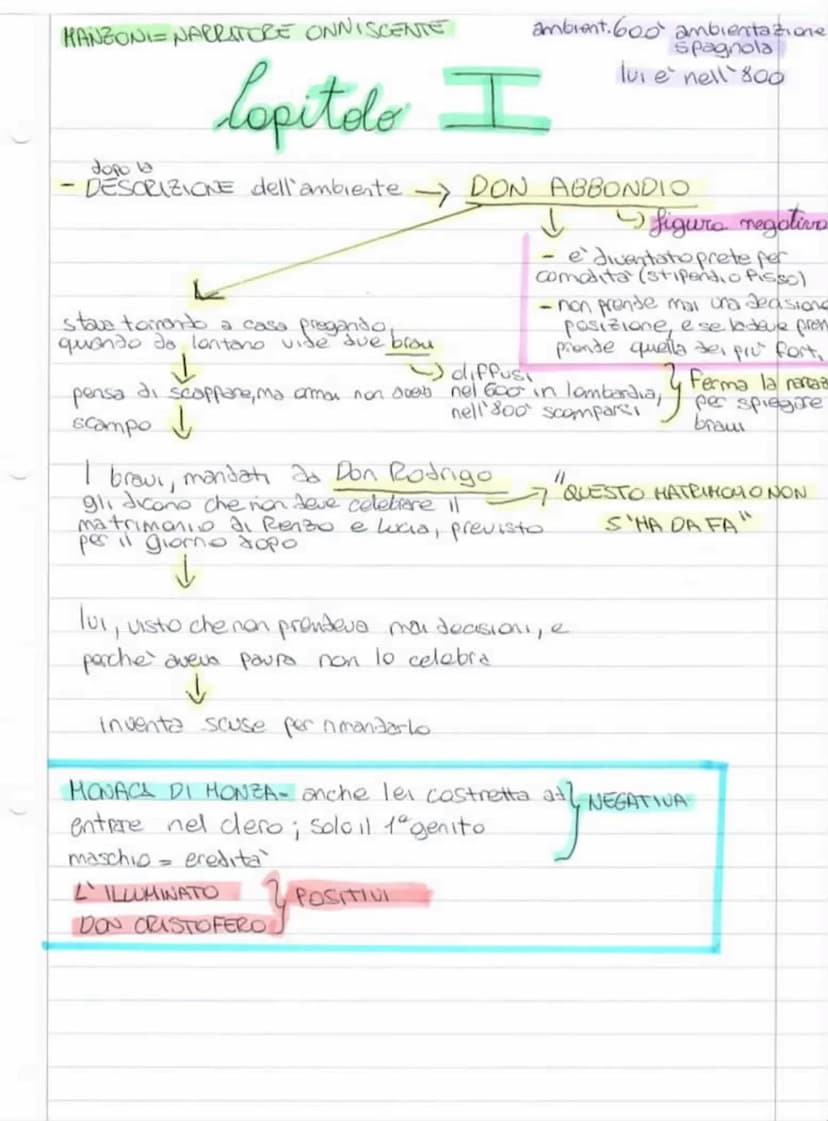 MANZONI = NARRATORE ONNISCENTE
ambient. 600` ambientazione
spagnola
lui e` nell`800
Capitolo I
dopo la
- DESCRIZIONE dell'ambiente → DON ABBONDIO
figura negativa
- e` diventato prete per
comodita` (stipendio fisso)
- non prende mai una decisione
posizione, e se la deve pren
prende quella dei piu` fort.
stava tornando a casa pregando,
quando da lontano vide due bravi
diffusi
nel 600` in lombardia,
nell'800` scomparsi
Ferma la narraz
per spiegare
bravi
pensa di scappare, ma ormai non aveva
scampo
I bravi, mandati da Don Rodrigo
gli dicono che non deve celebrare il
matrimonio di Renzo e Lucia, previsto
per il giorno dopo
"QUESTO MATRIMONIO NON
S'HA DA FA"
lui, visto che non prendeva mai decisioni, e
perche` aveva paura non lo celebra
inventa scuse per rimandarlo
MONACA DI MONZA = anche lei costretta ad
entrare nel clero; solo il 1° genito
maschio = eredita`
NEGATIVA
L'ILLUMINATO
DON CRISTOFERO
POSITIVI